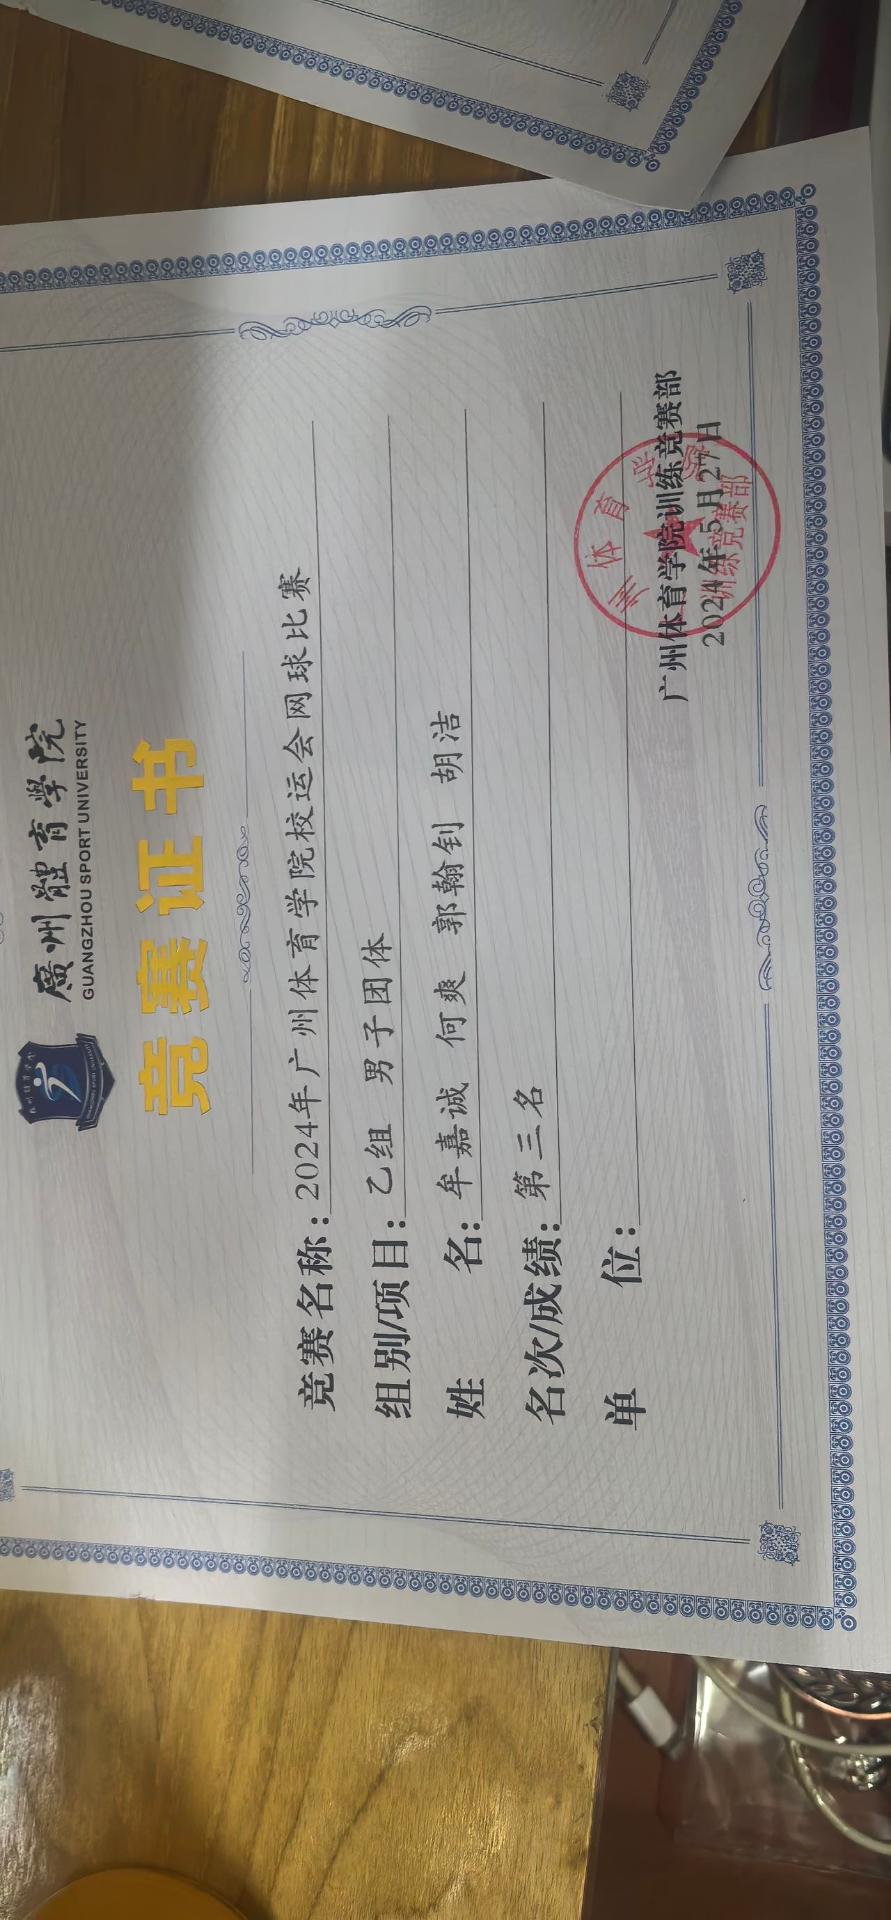 廣州體育學院
GUANGZHOU SPORT UNIVERSITY
竞赛证书
竞赛名称：2024年广州体育学院校运会网球比赛
组别/项目：乙组 男子团体
姓 名：牟嘉诚 何爽 郭翰钊 胡洁
名次/成绩：第三名
单 位：
广州体育学院训练竞赛部
2024年5月27日
州体育学院
训练竞赛部